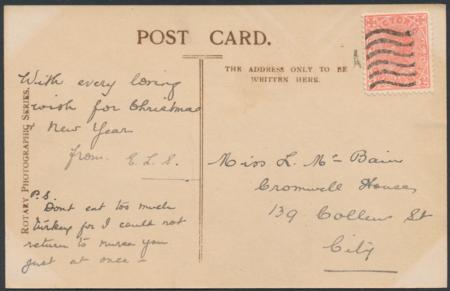 POST CARD.
THE ADDRESS ONLY TO BE
WRITTEN HERE.
ROTARY PHOTOGRAPHIC SERIES.
With every loving
wish for Christmas
& New Year
from E. L. S.
P.S.
Dont eat too much
Turkey for I could not
return to nurse you
just at once –
Miss L. McBain
Cromwell House
139 Collins St
City